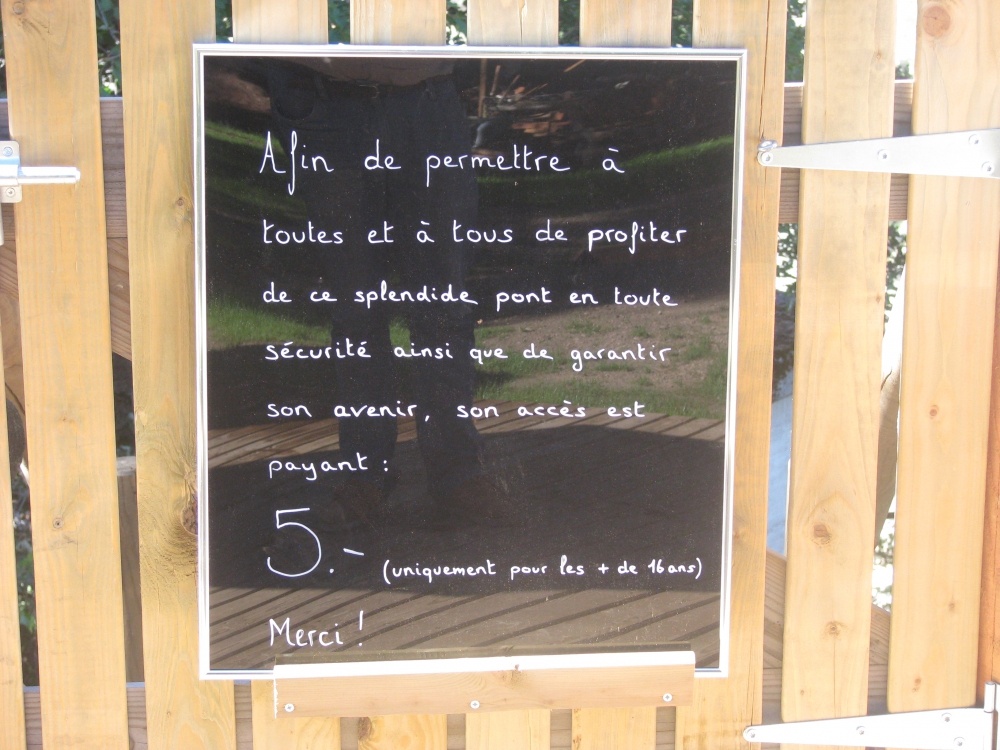 Afin de permettre à
toutes et à tous de profiter
de ce splendide pont en toute
sécurité ainsi que de garantir
son avenir, son accès est
payant :
5.- (uniquement pour les + de 16 ans)
Merci !